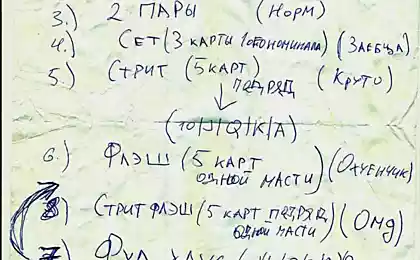 3.) 2 ПАРЫ (НОРМ)
4.) СЕТ (3 КАРТЫ 1ОГО НОМИНАЛА) (ЗАЕБЦА)
5.) СТРИТ (5 КАРТ ПОДРЯД) (КРУТО)
(10|J|Q|K|A)
6.) ФЛЭШ (5 КАРТ ОДНОЙ МАСТИ) (ОХУЕНЧИК)
8) СТРИТ ФЛЭШ (5 КАРТ ПОДРЯД ОДНОЙ МАСТИ) (OMG)
7.) ФУЛ ХАУС